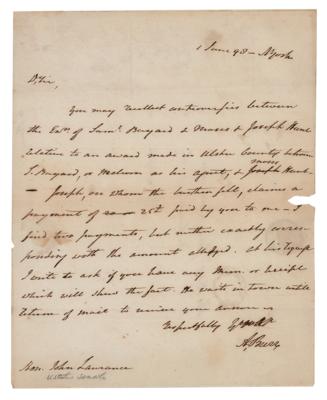 1 June 98 — NYork
D. Sir,
You may recollect controversies between
the Exrs. of Saml. Bayard & Moses & Joseph Hunt
relative to an award made in Ulster County between
S. Bayard, or Malcom as his agent, & Moses Joseph Hunt —
Joseph, on whom the burthen fell, claims a
payment of 25£ paid by you to me — I
find two payments, but neither exactly corres
ponding with the amount alledged. At his request
I write to ask if you have any Mem. or receipt
which will shew the fact. He waits in town until
return of mail to receive your answer
Respectfully
A. Burr
Hon. John Laurance